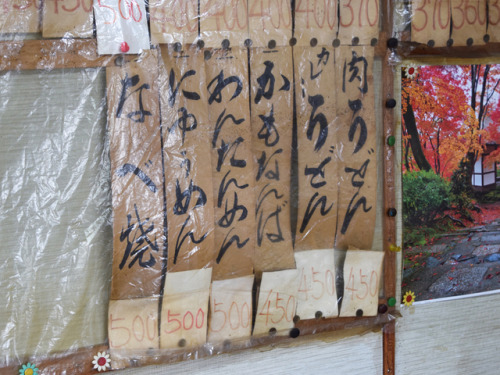 肉うどん
450
カレーうどん
450
かもなんば
450
わんたんめん
500
にゅうめん
500
なべ焼
500
500
400
400
400
400
370
370
360